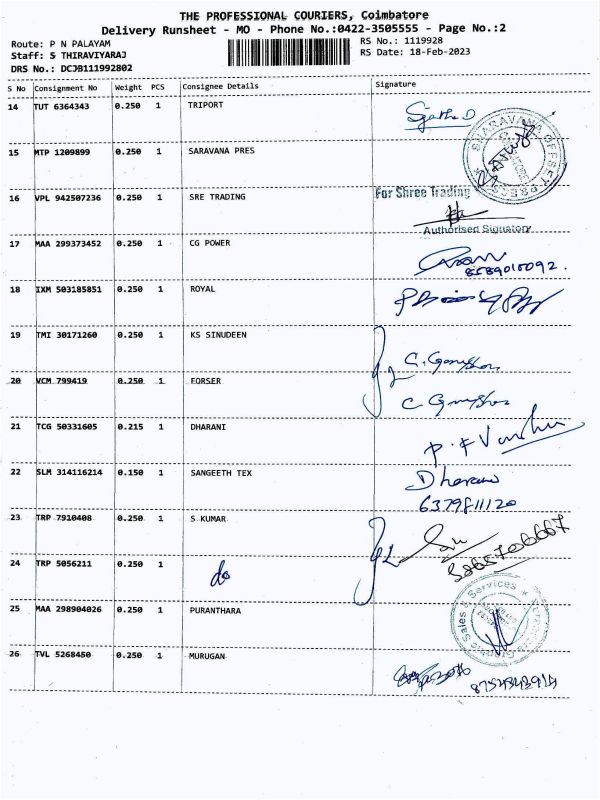 THE PROFESSIONAL COURIERS, Coimbatore
Delivery Runsheet - MO - Phone No.:0422-3505555 - Page No.:2
Route: P N PALAYAM
RS No.: 1119928
Staff: S THIRAVIYARAJ
RS Date: 18-Feb-2023
DRS No.: DCJB111992802
S No Consignment No Weight PCS Consignee Details Signature
14 TUT 6364343 0.250 1 TRIPORT
15 MTP 1209899 0.250 1 SARAVANA PRES
SHARAVANA OFFSET
16 VPL 942507236 0.250 1 SRE TRADING For Shree Trading
Authorised Signatory
17 MAA 299373452 0.250 1 CG POWER
8589010092.
18 IXM 503185851 0.250 1 ROYAL
19 TMI 30171260 0.250 1 KS SINUDEEN
20 VCM 799419 0.250 1 EORSER
21 TCG 50331605 0.215 1 DHARANI
22 SLM 314116214 0.150 1 SANGEETH TEX Dharani
6379811120
23 TRP 7910408 0.250 1 S KUMAR
24 TRP 5056211 0.250 1 do
Sales & Services
25 MAA 298904026 0.250 1 PURANTHARA
26 TVL 5268450 0.250 1 MURUGAN